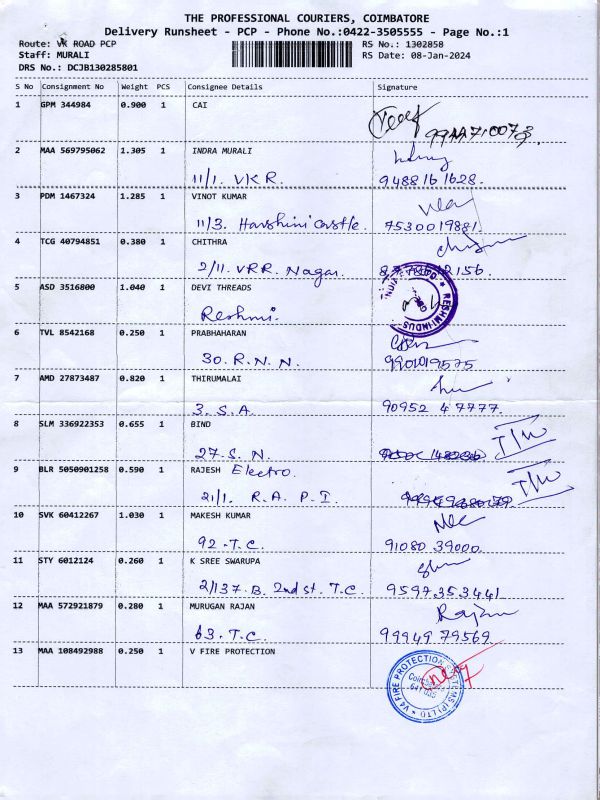 THE PROFESSIONAL COURIERS, COIMBATORE
Delivery Runsheet - PCP - Phone No.:0422-3505555 - Page No.:1
Route: VK ROAD PCP RS No.: 1302858
Staff: MURALI RS Date: 08-Jan-2024
DRS No.: DCJB130285801
S No Consignment No Weight PCS Consignee Details Signature
1 GPM 344984 0.900 1 CAI
2 MAA 569795062 1.305 1 INDRA MURALI
11/1. VKR. 9488161628.
3 PDM 1467324 1.285 1 VINOT KUMAR
11/3. Harshini Castle. 7530019881.
4 TCG 40794851 0.380 1 CHITHRA
2/11. VRR. Nagar.
5 ASD 3516800 1.040 1 DEVI THREADS
Reshmi.
6 TVL 8542168 0.250 1 PRABHAHARAN
30. R. N. N. 9901019575
7 AMD 27873487 0.820 1 THIRUMALAI
3. S. A. 90952 47777.
8 SLM 336922353 0.655 1 BIND
27. S. N.
9 BLR 5050901258 0.590 1 RAJESH Electro.
21/1. R. A. P. I.
10 SVK 60412267 1.030 1 MAKESH KUMAR
92 - T. C. 91080 39000.
11 STY 6012124 0.260 1 K SREE SWARUPA
2/137. B. 2nd st. T. C. 9597353441
12 MAA 572921879 0.280 1 MURUGAN RAJAN
63. T. C. 99949 79569
13 MAA 108492988 0.250 1 V FIRE PROTECTION
V4 FIRE PROTECTION SYSTEMS (P) LTD